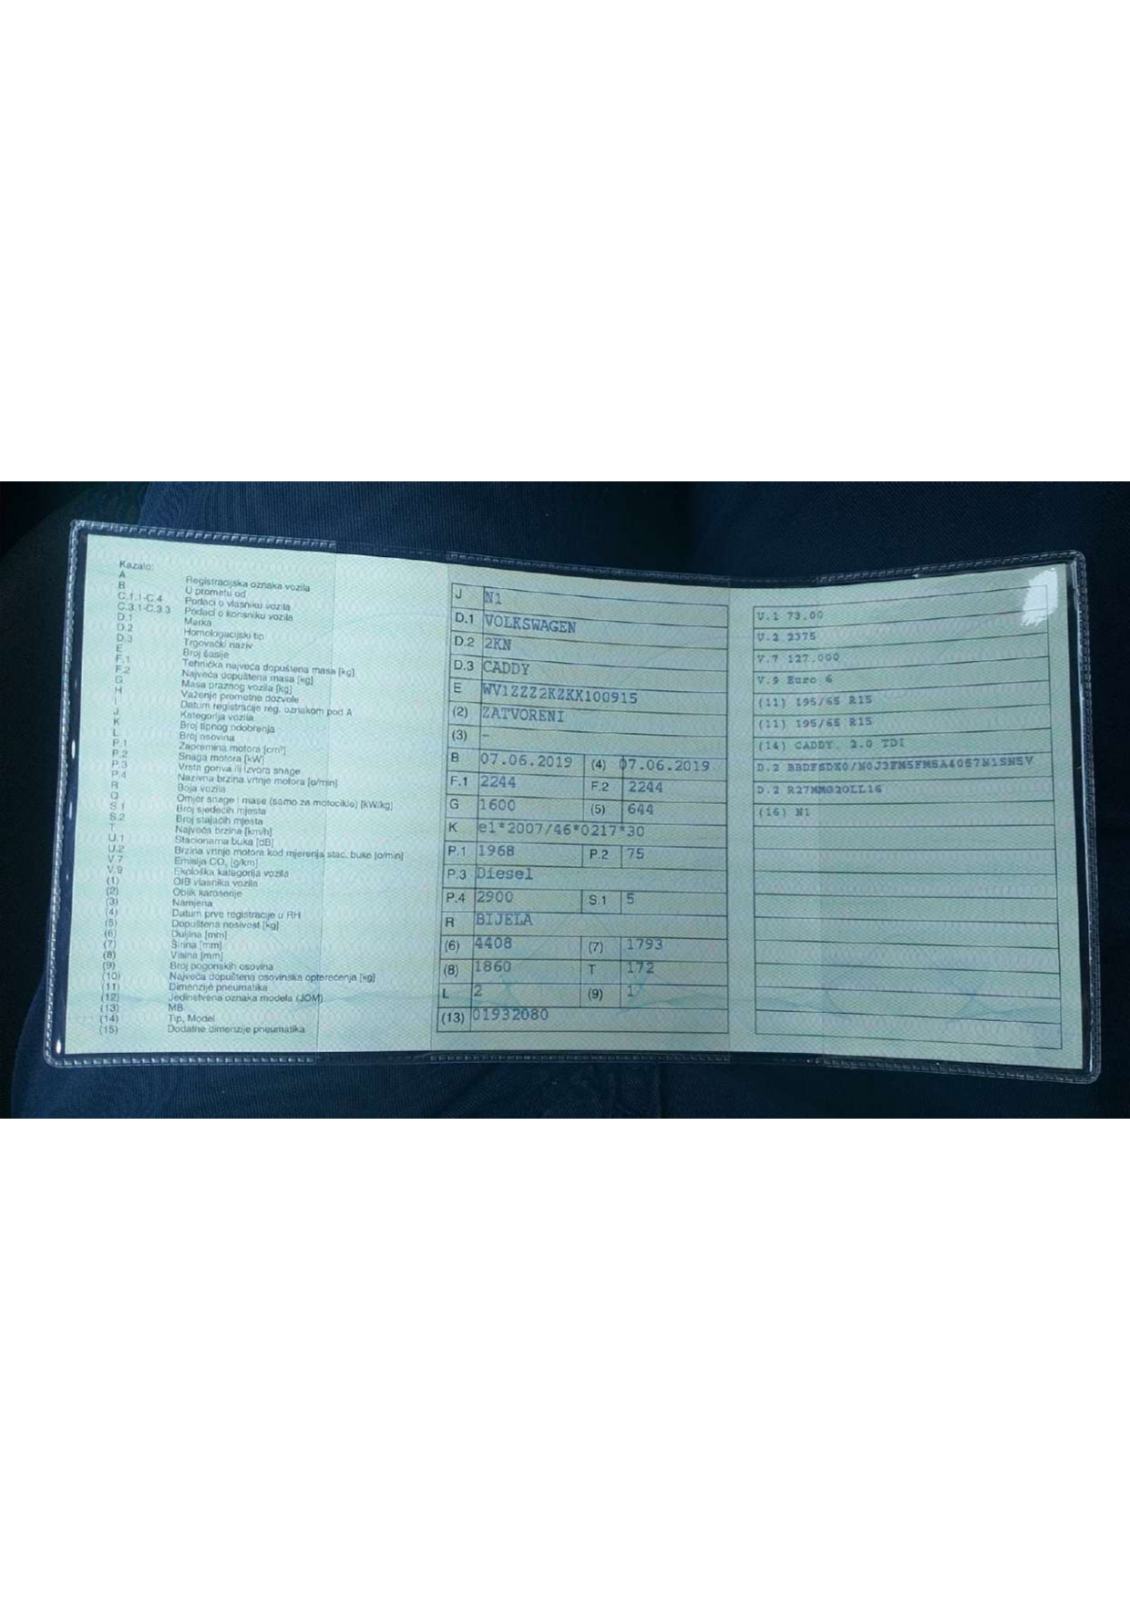 Kazalo:
A Registracijska oznaka vozila
B U prometu od
C.1.1-C.4 Podaci o vlasniku vozila
C.3.1-C.3.3 Podaci o korisniku vozila
D.1 Marka
D.2 Homologacijski tip
D.3 Trgovački naziv
E Broj šasije
F.1 Tehnička najveća dopuštena masa [kg]
F.2 Najveća dopuštena masa [kg]
G Masa praznog vozila [kg]
H Važenje prometne dozvole
I Datum registracije reg. oznakom pod A
J Kategorija vozila
K Broj tipnog odobrenja
L Broj osovina
P.1 Zapremina motora [cm³]
P.2 Snaga motora [kW]
P.3 Vrsta goriva ili izvora snage
P.4 Nazivna brzina vrtnje motora [o/min]
R Boja vozila
Q Omjer snage i mase (samo za motocikle) [kW/kg]
S.1 Broj sjedećih mjesta
S.2 Broj stajaćih mjesta
T Najveća brzina [km/h]
U.1 Stacionarna buka [dB]
U.2 Brzina vrtnje motora kod mjerenja stac. buke [o/min]
V.7 Emisija CO₂ [g/km]
V.9 Ekološka kategorija vozila
(1) OIB vlasnika vozila
(2) Oblik karoserije
(3) Namjena
(4) Datum prve registracije u RH
(5) Dopuštena nosivost [kg]
(6) Duljina [mm]
(7) Širina [mm]
(8) Visina [mm]
(9) Broj pogonskih osovina
(10) Najveća dopuštena osovinska opterećenja [kg]
(11) Dimenzije pneumatika
(12) Jedinstvena oznaka modela (JOM)
(13) MB
(14) Tip, Model
(15) Dodatne dimenzije pneumatika
J N1
D.1 VOLKSWAGEN
D.2 2KN
D.3 CADDY
E WV1ZZZ2KZKX100915
(2) ZATVORENI
(3) -
B 07.06.2019 (4) 07.06.2019
F.1 2244 F.2 2244
G 1600 (5) 644
K e1*2007/46*0217*30
P.1 1968 P.2 75
P.3 Diesel
P.4 2900 S.1 5
R BIJELA
(6) 4408 (7) 1793
(8) 1860 T 172
L 2 (9) 1
(13) 01932080
U.1 73.00
U.2 2375
V.7 127.000
V.9 Euro 6
(11) 195/65 R15
(11) 195/65 R15
(14) CADDY, 2.0 TDI
D.2
D.2 R27MM020LL16
(16) N1